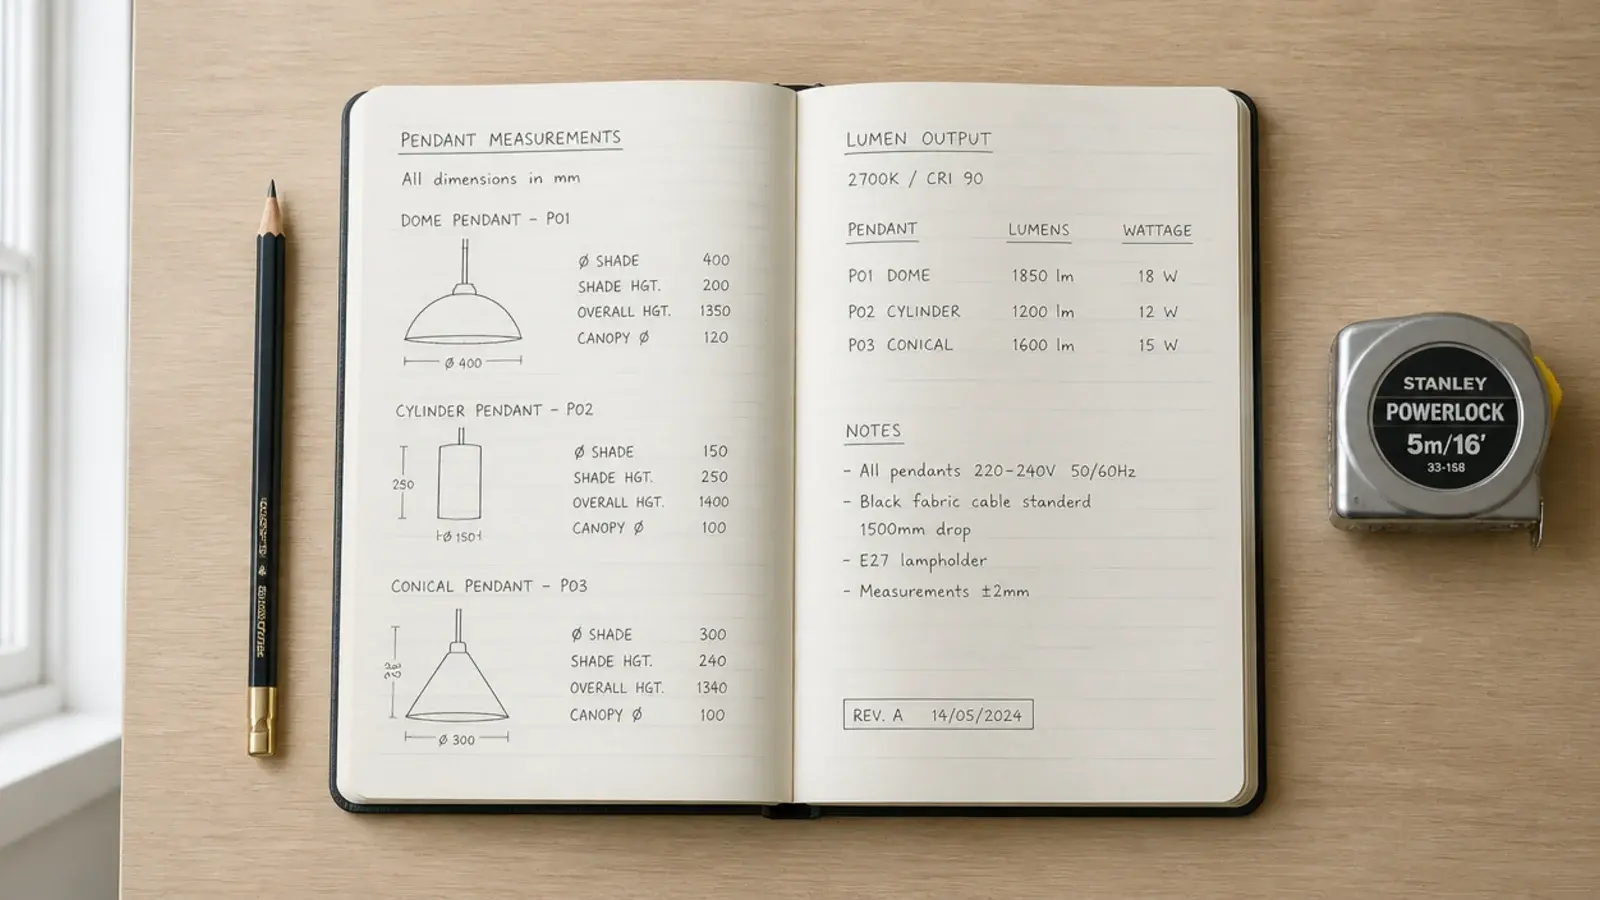 PENDANT MEASUREMENTS
All dimensions in mm
DOME PENDANT – P01
Ø SHADE 400
SHADE HGT. 200
OVERALL HGT. 1350
CANOPY Ø 120
Ø 400
CYLINDER PENDANT – P02
Ø SHADE 150
SHADE HGT. 250
OVERALL HGT. 1400
CANOPY Ø 100
250
Ø 150
CONICAL PENDANT – P03
Ø SHADE 300
SHADE HGT. 240
OVERALL HGT. 1340
CANOPY Ø 100
Ø 300
LUMEN OUTPUT
2700K / CRI 90
PENDANT LUMENS WATTAGE
P01 DOME 1850 lm 18 W
P02 CYLINDER 1200 lm 12 W
P03 CONICAL 1600 lm 15 W
NOTES
- All pendants 220-240V 50/60Hz
- Black fabric cable standerd
1500mm drop
- E27 lampholder
- Measurements ±2mm
REV. A 14/05/2024
STANLEY
POWERLOCK
5m/16'
33-158